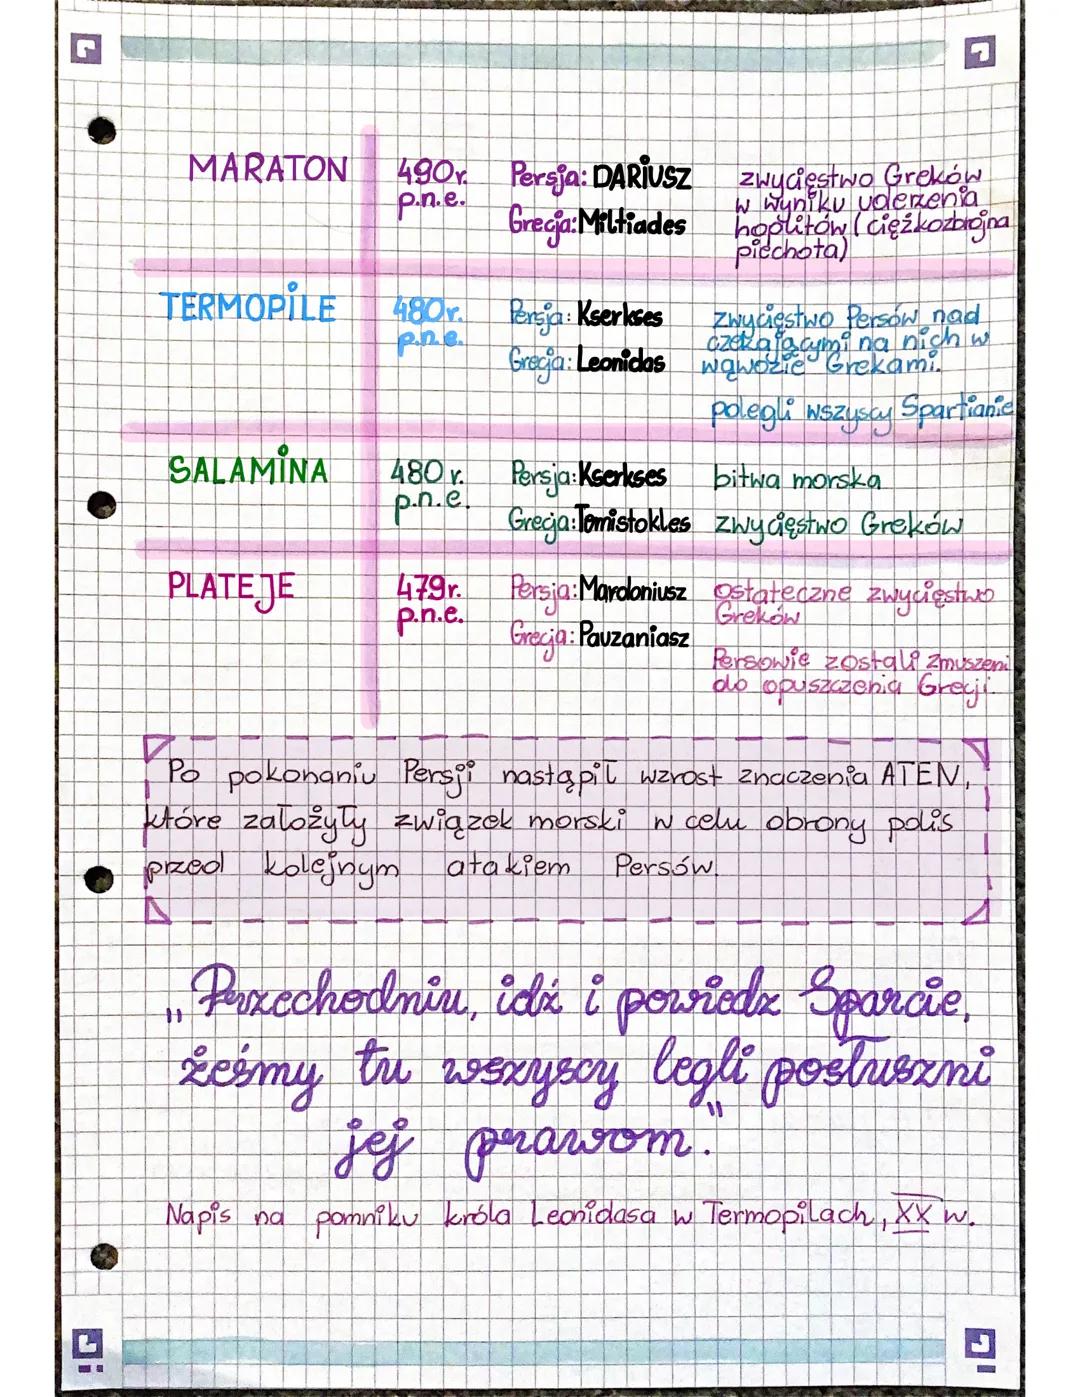 MARATON 490r. Persja: DARIUSZ zwycięstwo Greków
p.n.e. w wyniku uderzenia
Grecja: Miltiades hoplitów (ciężkozbrojna
piechota)
TERMOPILE 480r. Persja: Kserkses zwycięstwo Persów nad
p.n.e. czekającymi na nich w
Grecja: Leonidas wąwozie Grekami.
polegli wszyscy Spartianie
SALAMINA 480 r. Persja: Kserkses bitwa morska
p.n.e.
Grecja: Temistokles zwycięstwo Greków
PLATEJE 479r. Persja: Mardoniusz ostateczne zwycięstwo
p.n.e. Greków
Grecja: Pauzaniasz
Persowie zostali zmuszeni
do opuszczenia Grecji.
Po pokonaniu Persji nastąpił wzrost znaczenia ATEN,
które założyły związek morski w celu obrony polis
przed kolejnym atakiem Persów.
„Przechodniu, idź i powiedz Sparcie,
żeśmy tu wszyscy legli posłuszni
jej prawom."
Napis na pomniku króla Leonidasa w Termopilach, XX w.